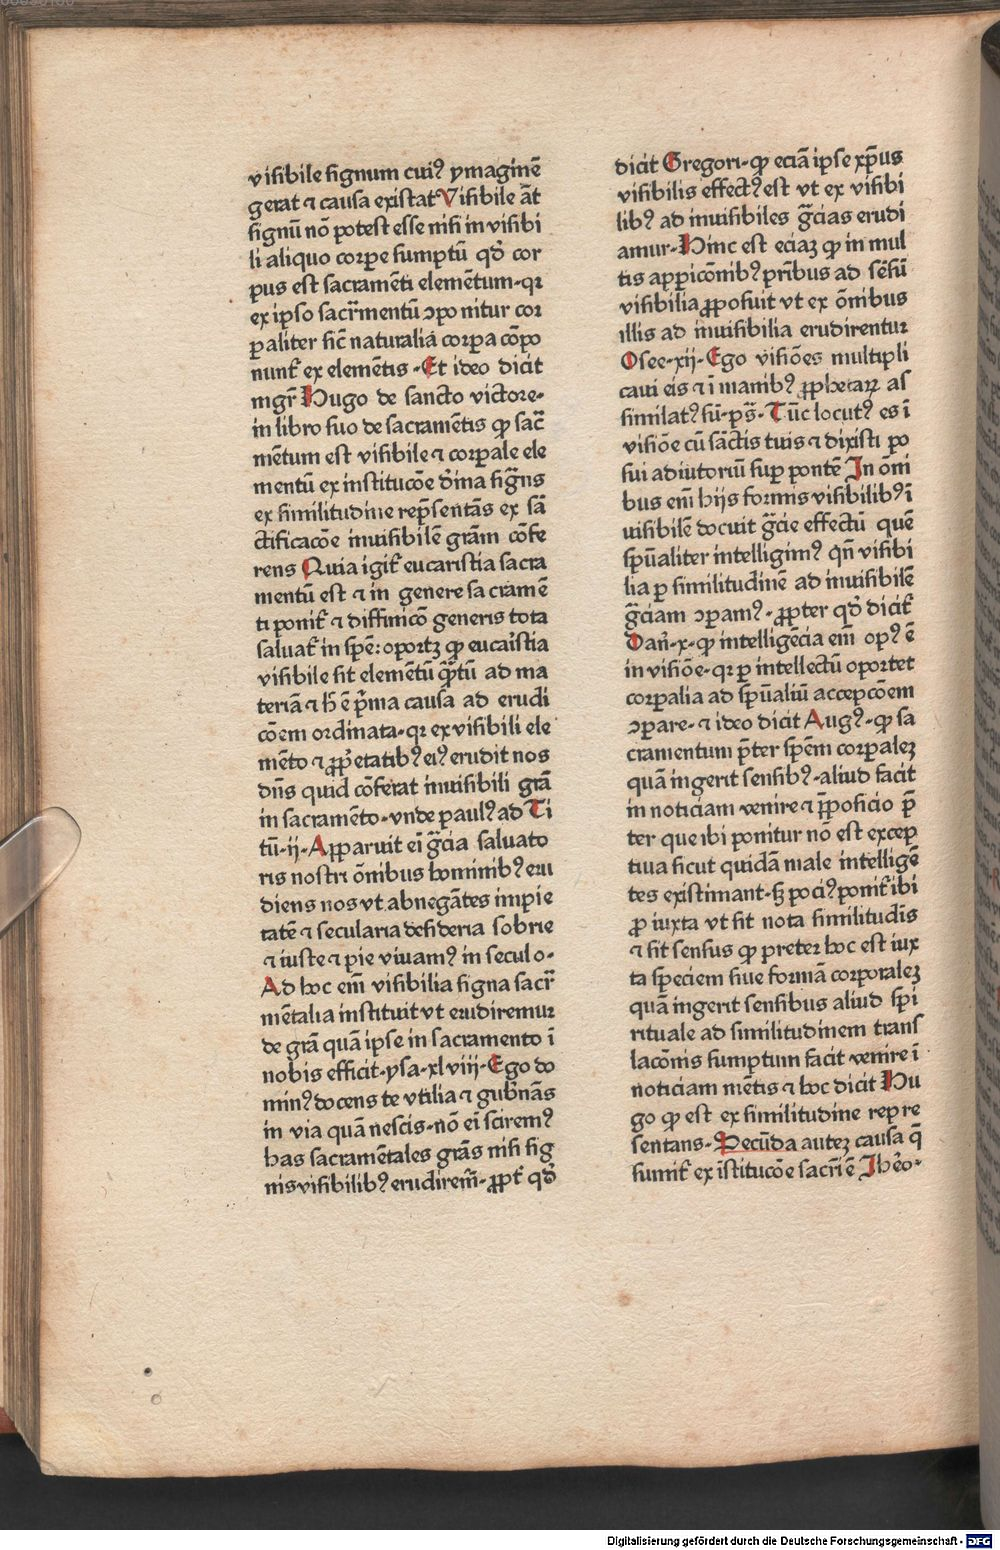 visibile signum cuiꝰ ymaginē
gerat ⁊ causa existat Visibile āt
signū nō potest esse nisi in visibi
li aliquo corpe sumptū qd̓ cor
pus est sacramēti elemētum·qꝛ
ex ipso sacr̄mentū ɔponitur cor
ꝑaliter sic̄ naturalia corꝑa cōpo
nunt̄ ex elemētis·Et ideo dicit
mgr̄ Hugo de sancto victore·
in libro suo de sacramētis ꝙ sac̄
mētum est visibile ⁊ corꝑale ele
mentū ex institucōe dīna sigꝰns
ex similitudine rep̄sentās ex sā
ctificacōe inuisibilē grām cōfe
rens Quia igit̄ eucaristia sacra
mentū est ⁊ in genere sacramē
ti ponit̄ ⁊ diffinicō generis tota
saluat̄ in spē: oportꝫ ꝙ eucaristia
visibile sit elemētū qꝫtū ad ma
teriā ⁊ h̄ ē p̄ma causa ad erudi
cōem ordinata·qꝛ ex visibili ele
mēto ⁊ ꝓpetatibꝰ eiꝰ erudit nos
dn̄s quid cōferat inuisibili grā
in sacramēto·vnde paulꝰ ad Ti
tū·ij·Apparuit eī gr̄cia saluato
ris nostri ōmibus hominibꝰ eru
diens nos vt abnegātes impie
tatē ⁊ secularia desideria sobrie
⁊ iuste ⁊ pie viuamꝰ in seculo·
Ad hoc em̄ visibilia signa sacr̄
mētalia instituit vt erudiremur
de grā quā ipse in sacramento ī
nobis efficit·ysa·xlviij·Ego do
minꝰ docens te vtilia ⁊ gub̓nās
in via quā nescis·nō eī sciremꝰ
has sacramētales grās nisi sig
nis visibilibꝰ erudirem̄·ꝓpt̄ qd̓
dicit Gregori·ꝙ eciā ipse xp̄us
visibilis effectꝰ est vt ex visibi
libꝰ ad inuisibiles gr̄cias erudi
amur·Hinc est eciaꝫ ꝙ in mul
tis apꝑicōnibꝰ pr̄ibus ad sēsū
visibilia ꝓposuit vt ex ōmibus
illis ad inuisibilia erudirentur
Osee·xij·Ego visiōes multipli
caui eis ⁊ ī manibꝰ ꝓphetaꝝ as
similatꝰ sū·ps̄·Tūc locutꝰ es ī
visiōe cū sāctis tuis ⁊ dixisti po
sui adiutoriū suꝑ potentē In ōmi
bus em̄ hijs formis visibilibꝰ ī
uisibilē docuit gr̄cie effectū quē
spūaliter intelligimꝰ qn̄ visibi
lia ꝑ similitudinē ad inuisibilē
gr̄ciam ɔꝑamꝰ·ꝓpter qd̓ dicit̄
Dan̄·x·ꝙ intelligēcia em̄ opꝰ ē
in visiōe·qꝛ ꝑ intellectū oportet
corꝑalia ad spūaliū accepcōem
ɔꝑare·⁊ ideo dicit Augꝰ·ꝙ sa
cramentum p̄ter spēm corpaleꝫ
quā ingerit sensibꝰ·aliud facit
in noticiam venire ⁊ p̄posicio p̄
ter que ibi ponitur nō est excep
tiua sicut quidā male intelligē
tes existimant·sꝫ pociꝰ ponit̄ ibi
ꝓ iuxta vt sit nota similitudīs
⁊ sit sensus ꝙ preter hoc est iux
ta speciem siue formā corporaleꝫ
quā ingerit sensibus aliud spi
rituale ad similitudinem trans
lacōnis sumptum facit venire ī
noticiam mētis ⁊ hoc dicit Hu
go ꝙ est ex similitudine repre
sentans·Secūda auteꝫ causa q̄
sumit̄ ex īstitucōe sacr̄i ē Jheō·